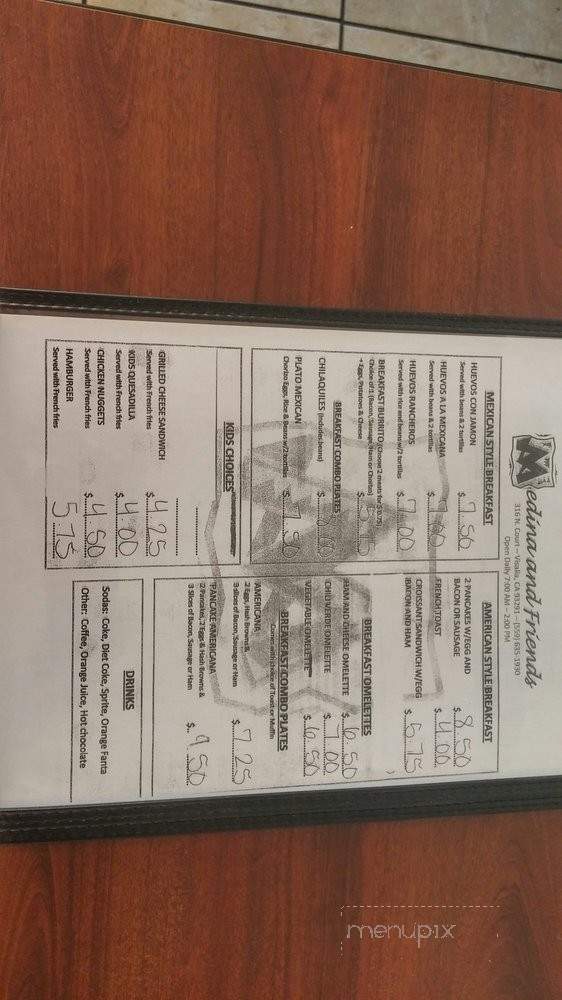 Medina and Friends
316 N. Court – Visalia, CA 93291 – (559) 635-1930
Open Daily 7:00 AM – 2:30 PM
MEXICAN STYLE BREAKFAST
HUEVOS CON JAMON $ 7.50
Served with beans & 2 tortillas
HUEVOS A LA MEXICANA $ 7.00
Served with beans & 2 tortillas
HUEVOS RANCHEROS $ 7.00
Served with rice and beans w/2 tortillas
BREAKFAST BURRITO (Choose 2 meats for $ 0.75) $ 5.75
Choice of 1 (Bacon, Sausage, Ham or Chorizo)
+ Eggs, Potatoes & Cheese
BREAKFAST COMBO PLATES
CHILAQUILES (includes beans) $ .00
PLATO MEXICAN $ 7.50
Chorizo Eggs, Rice & Beans w/2 tortillas
KIDS CHOICES
GRILLED CHEESE SANDWICH $ 4.25
Served with French fries
KIDS QUESADILLA $ 4.00
Served with French fries
CHICKEN NUGGETS $ 4.50
Served with French fries
HAMBURGER 5.75
Served with French fries
AMERICAN STYLE BREAKFAST
2 PANCAKES W/EGG AND
BACON OR SAUSAGE $ 8.50
FRENCH TOAST $ 4.00
CROISSANT SANDWICH W/EGG
BACON AND HAM $ 5.75
BREAKFAST OMELETTES
HAM AND CHEESE OMELETTE $ 6.50
CHILI VERDE OMELETTE $ 7.00
VEGETABLE OMELETTE $ 6.50
BREAKFAST COMBO PLATES
Comes with choice of Toast or Muffin
AMERICANA
2 Eggs, Hash Browns &
3 slices of Bacon, Sausage or Ham $ 7.25
PANCAKE AMERICANA
2 Pancakes, 2 Eggs & Hash Browns &
3 Slices of Bacon, Sausage or Ham $ 9.50
DRINKS
Sodas: Coke, Diet Coke, Sprite, Orange Fanta
Other: Coffee, Orange Juice, Hot chocolate
menupix